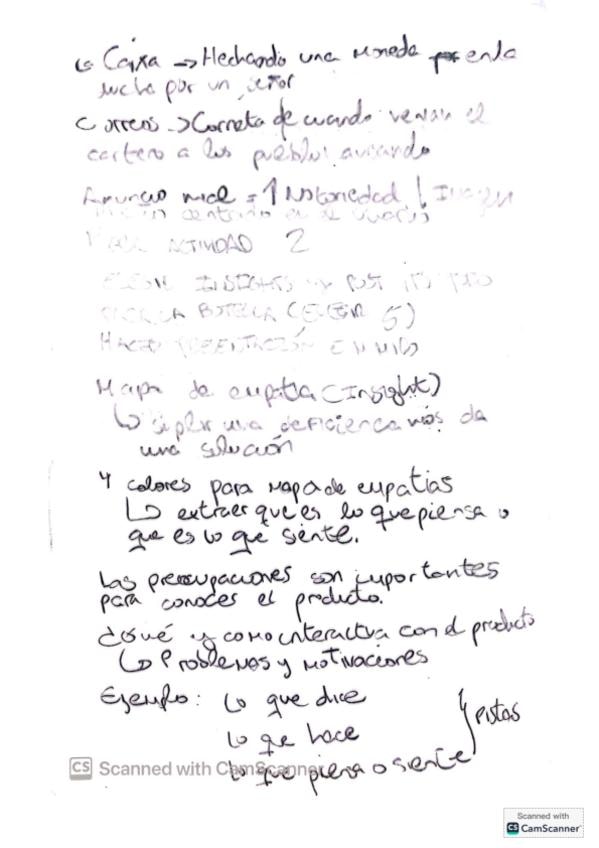 ↳ Caixa → Hechando una moneda en la
lucha por un señor
Correos → Corneta de cuando venian el
cartero a los pueblos avisando
Anuncio mal = ↑ Notoriedad ↓ Imagen
centrado en el usuario
ACTIVIDAD 2
INSIGHTS POST ITS
BOTELLA (ELEGIR 5)
HACER PRESENTACIÓN EN MIRO
Mapa de empatia (Insight)
↳ suplir una deficiencia nos da
una solución
4 colores para mapa de empatias
↳ extraer que es lo que piensa o
que es lo que siente.
Las preocupaciones son importantes
para conocer el producto.
¿Qué y como interactua con el producto
↳ Problemas y Motivaciones
Ejemplo: Lo que dice
Lo que hace
Lo que piensa o siente
pistas
CS Scanned with CamScanner
Scanned with
CS CamScanner